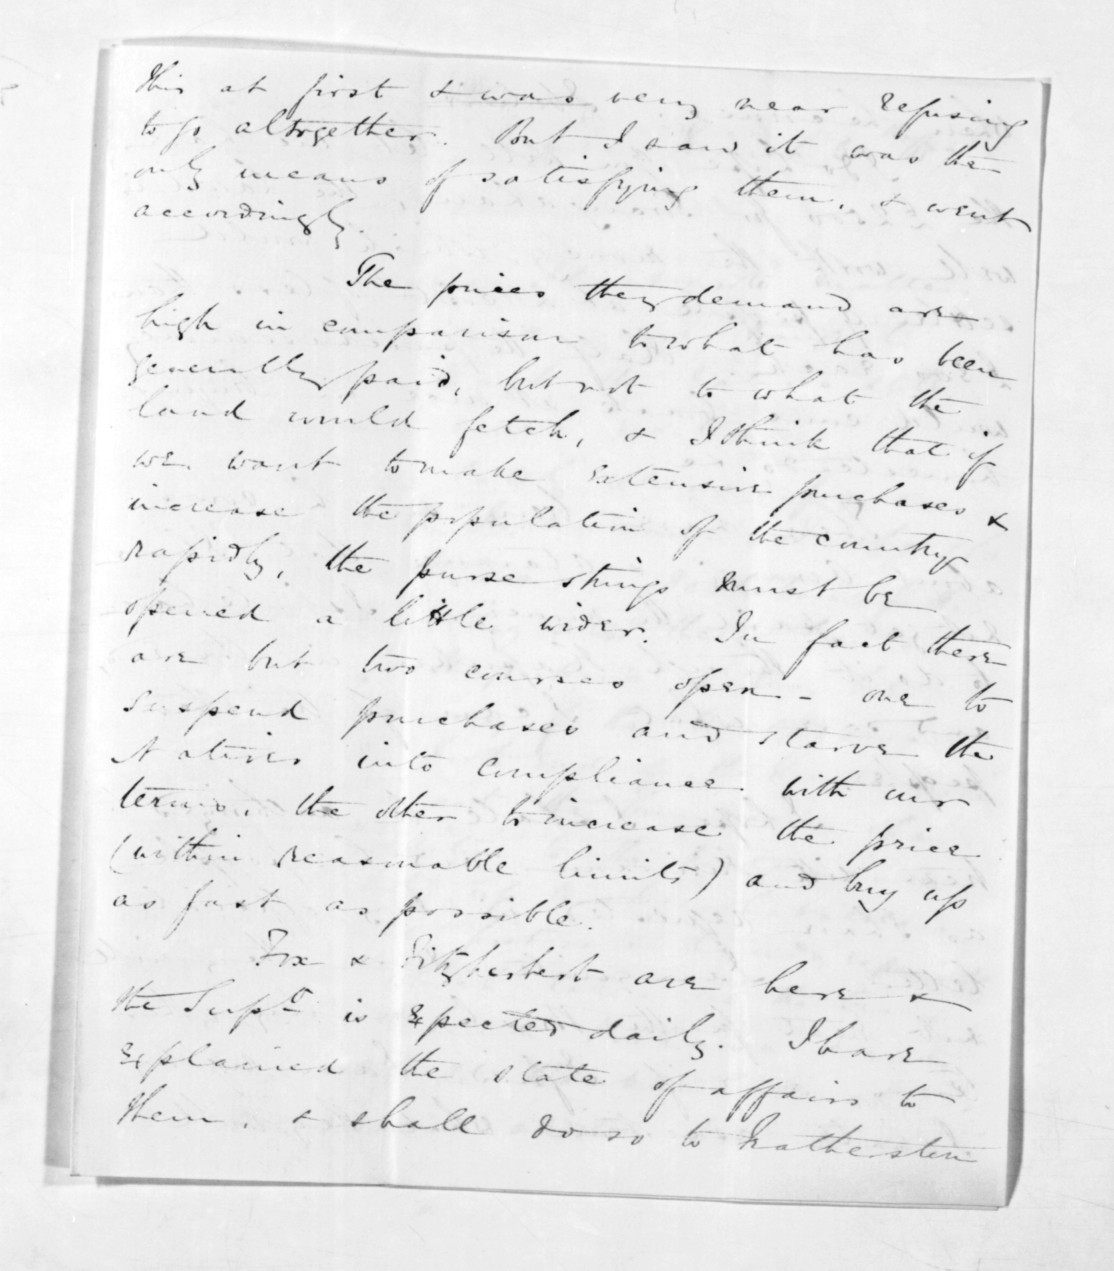 this at first & was very near refusing
to go altogether. But I saw it was the
only means of satisfying them, & went
accordingly.
The prices they demand are
high in comparison to what has been
generally paid, but not to what the
land would fetch, & I think that if
we want to make extensive purchases &
increase the population of the country
rapidly, the purse strings must be
opened a little wider. In fact there
are but two courses open - one to
suspend purchases and starve the
Natives into compliance with our
terms, the other to increase the price
(within reasonable limits) and buy up
as fast as possible.
Fox & Fitzherbert are here &
the Supt. is expected daily. I have
explained the state of affairs to
them, & shall do so to Featherston